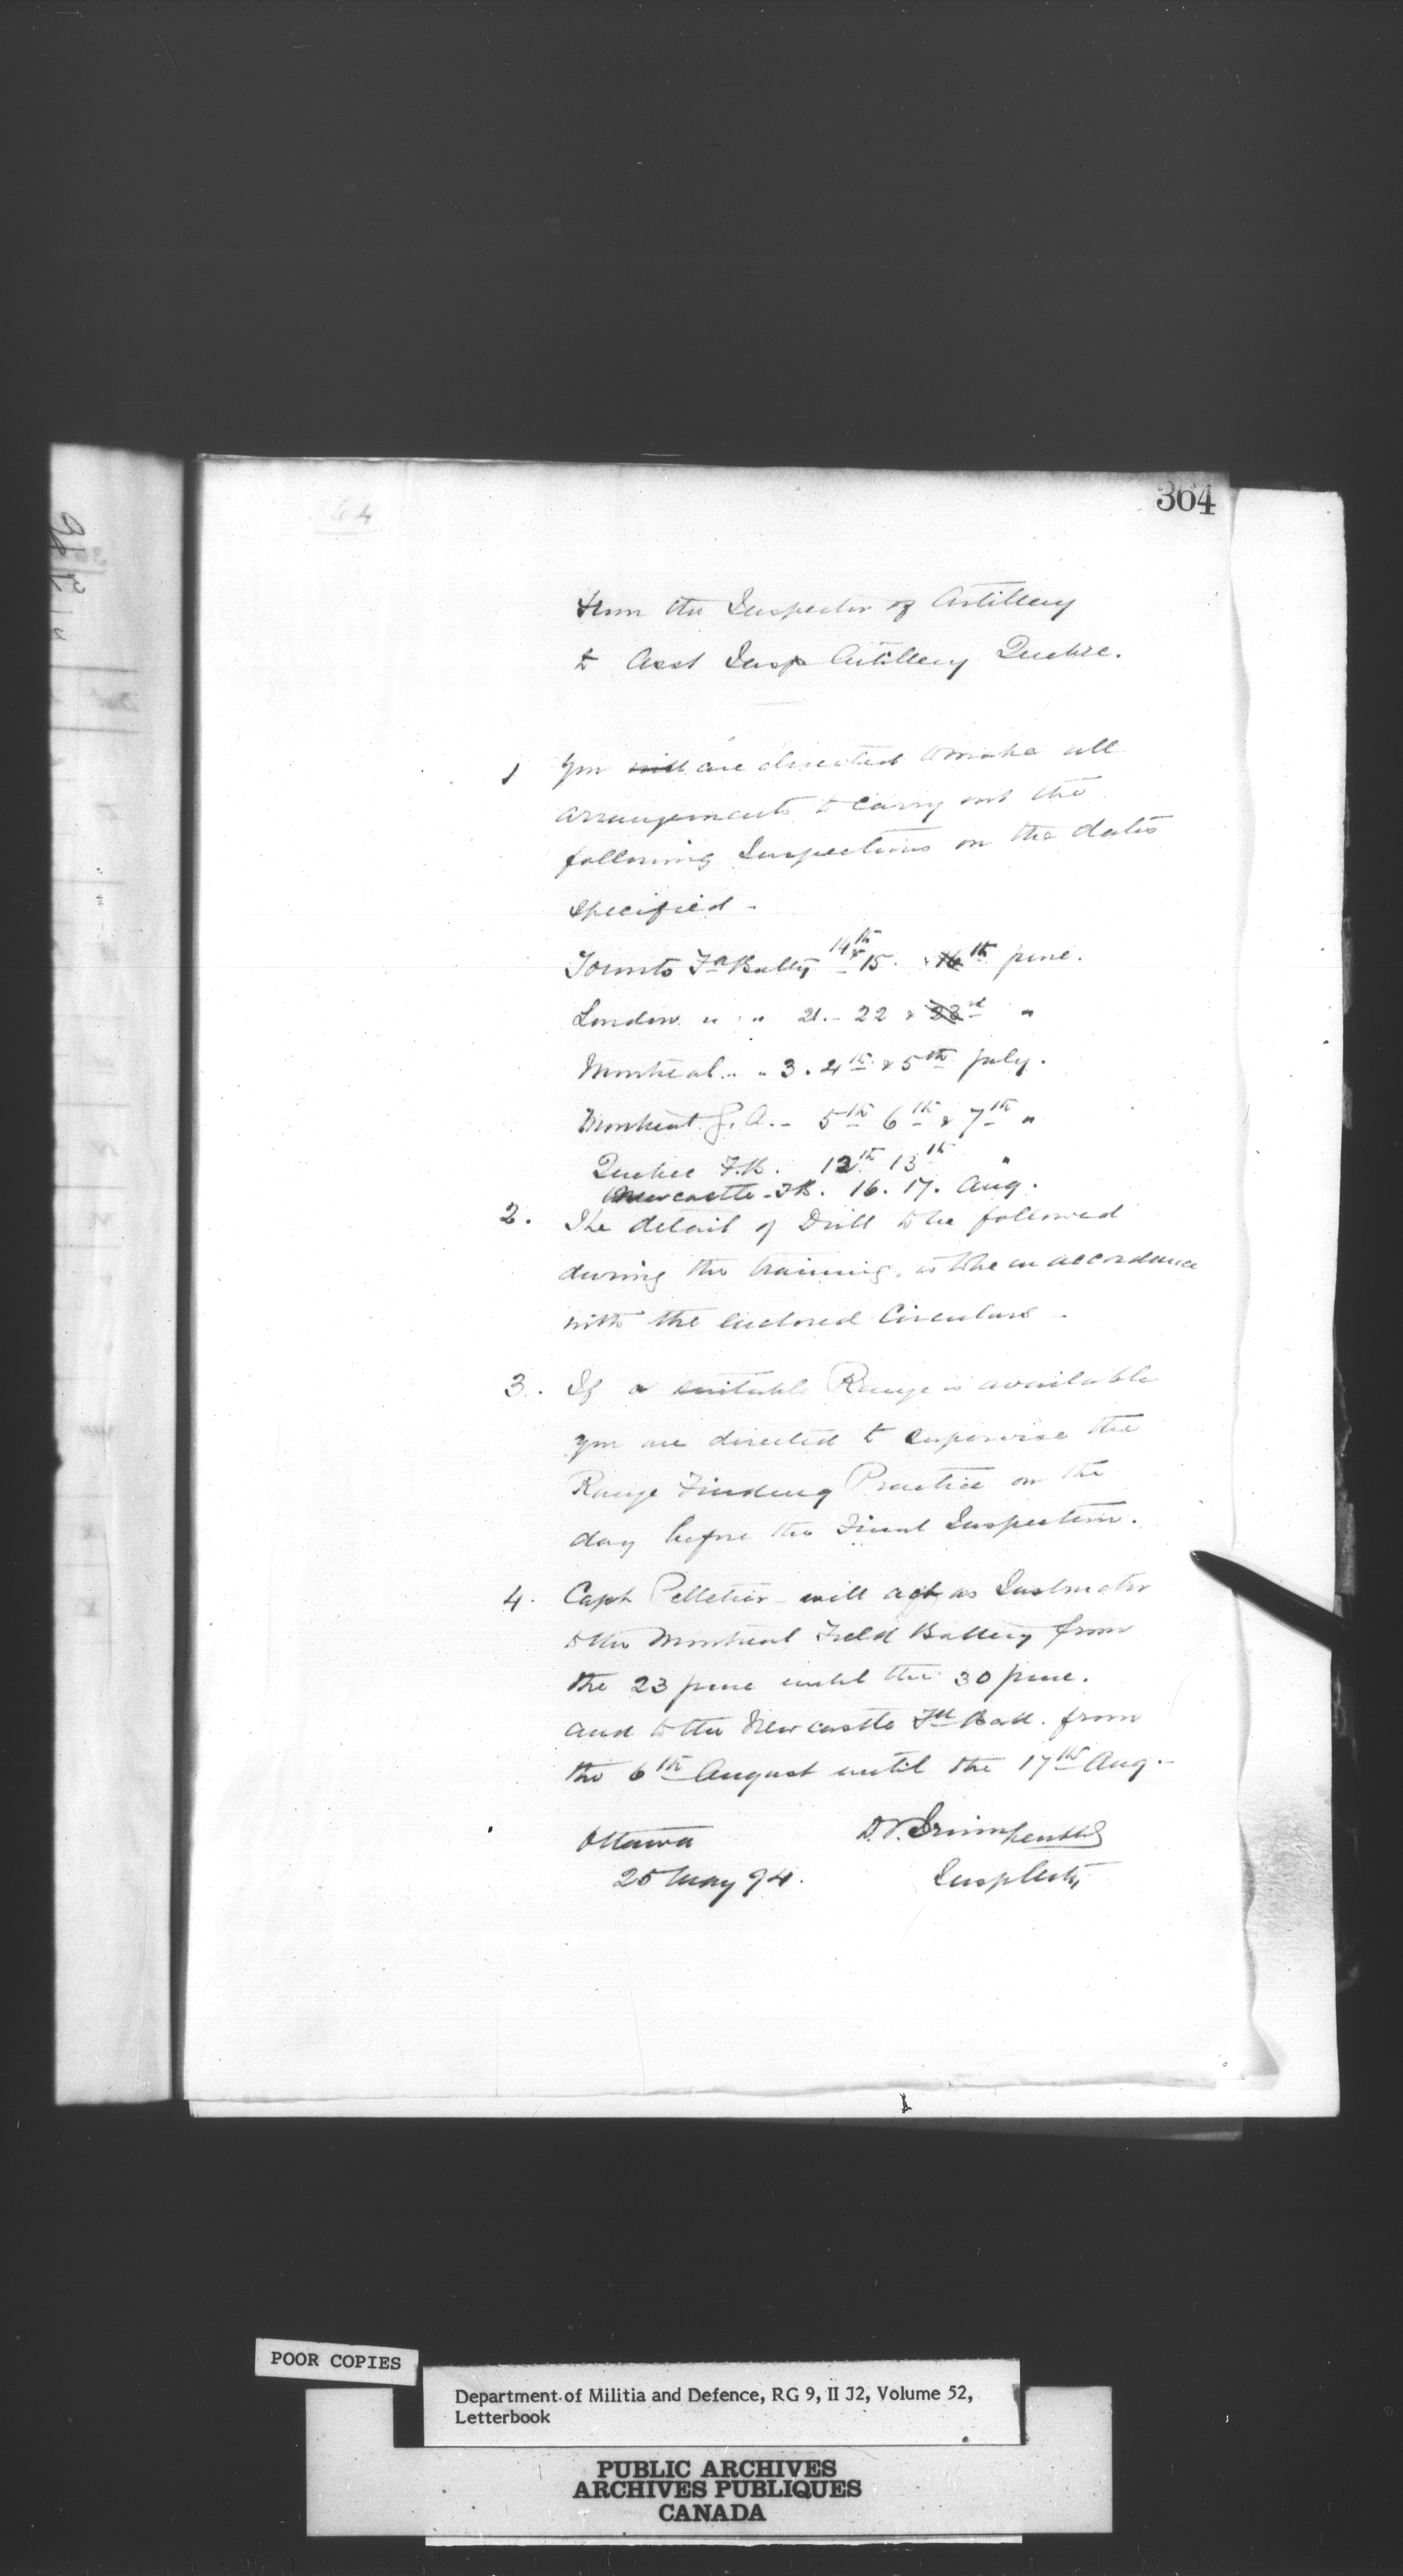 364
364
From the Inspector of Artillery
to Asst Insp Artillery Quebec.
1 You will are directed to make all
arrangements to carry out the
following Inspections on the dates
specified -
Toronto Fd Batty 14th & 15. & 16th June.
London " " 21. - 22 & 23rd "
Montreal " " 3. 4th & 5th July.
Montreal G. A. - 5th 6th & 7th "
Quebec F.B. 12th 13th "
Newcastle - F.B. 16. 17. Aug.
2. The detail of Drill to be followed
during the training, is to be in accordance
with the enclosed Circulars -
3. If a suitable Range is available
you are directed to supervise the
Range Finding Practice on the
day before the Final Inspection.
4. Capt Pelletier - will act as Instructor
to the Montreal Field Battery from
the 23 June until the 30 June.
and to the Newcastle Fd Batt. from
the 6th August until the 17th Aug -
Ottawa
25 May 94.
Inspector
POOR COPIES
Department of Militia and Defence, RG 9, II J2, Volume 52,
Letterbook
PUBLIC ARCHIVES
ARCHIVES PUBLIQUES
CANADA